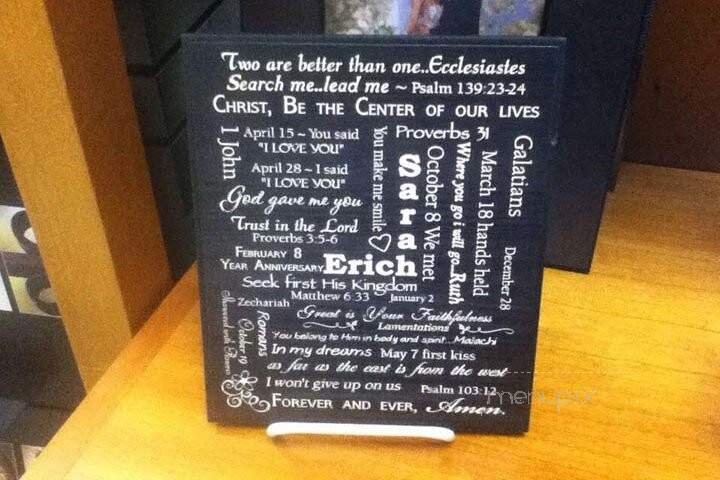 Two are better than one..Ecclesiastes
Search me..lead me ~ Psalm 139:23-24
CHRIST, BE THE CENTER OF OUR LIVES
1 John
April 15 ~ You said
"I LOVE YOU"
April 28 ~ I said
"I LOVE YOU"
God gave me you
Trust in the Lord
Proverbs 3:5-6
FEBRUARY 8
YEAR ANNIVERSARY
You make me smile
Proverbs 31
Sara
October 8 We met
Where you go i will go..Ruth
March 18 hands held
Galatians
December 28
Erich
Seek first His Kingdom
Matthew 6:33
January 2
Zechariah
Great is Your Faithfulness
Lamentations
Romans
October 19
You belong to Him in body and spirit..Malachi
In my dreams May 7 first kiss
as far as the east is from the west
I won't give up on us Psalm 103:12
FOREVER AND EVER, Amen.